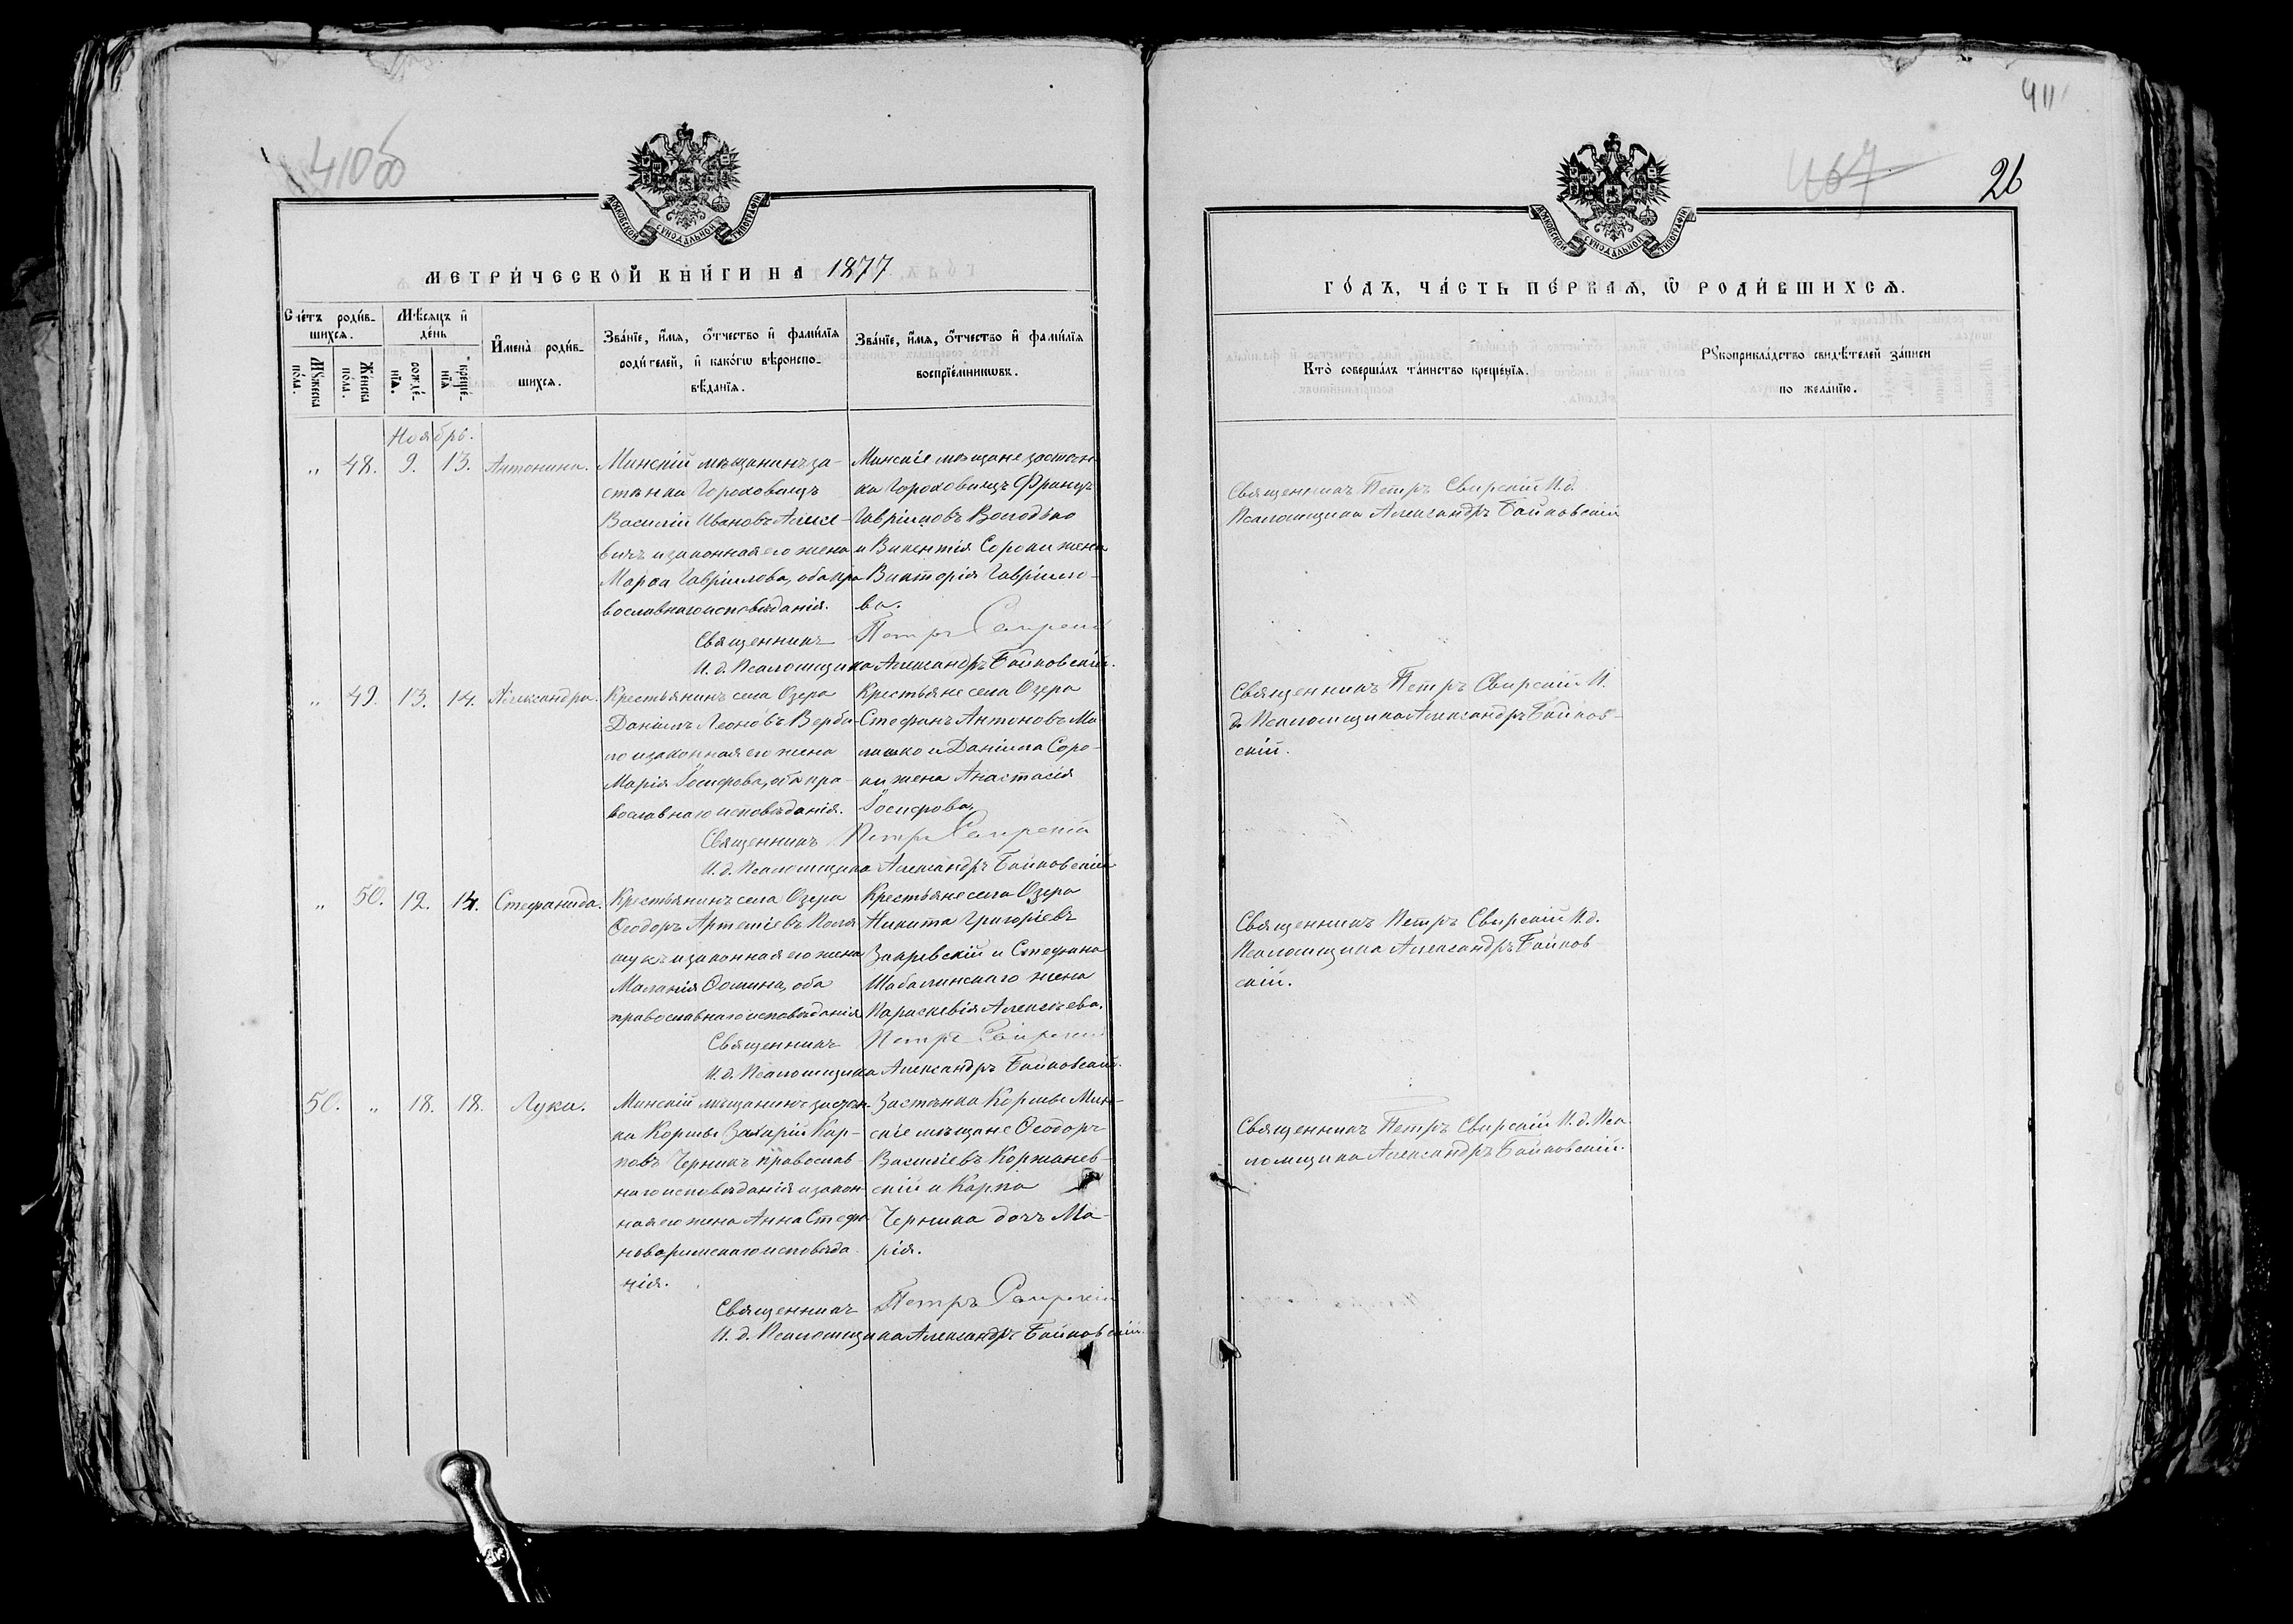 410об
МОСКОВСКОЙ СѴНОДАЛЬНОЙ ТИПОГРАФІИ
МЕТРИ́ЧЕСКОЙ КНИ́ГИ НА 1877
Сче́тъ роди́в-
шихсѧ.
Мꙋ́жеска по́ла.
Же́нска по́ла.
Мѣ́сѧцъ и҆ де́нь
рожде́-
нїѧ.
креще́-
нїѧ
И҆мена̀ роди́в-
шихсѧ.
Зва́нїе, и҆́мѧ, ѻ҆́тчество и҆ фами́лїѧ
роди́телей, и҆ како́гѡ вѣроиспо-
вѣ́данїѧ.
Зва́нїе, и҆́мѧ, ѻ҆́тчество и҆ фами́лїѧ
воспрїе́мникѡвъ.
Ноябрь.
„ 48. 9. 13. Антонина.
Минскій мѣщанинъ за-
стѣнка Городовищъ
Василій Ивановъ Алексе-
вичъ и законная его жена
Марѳа Гавріилова, оба пра
вославнаго исповѣданія.
Минскіе мѣщане застѣн-
ка Городовищъ Францъ
Гавріиловъ Володько
и Викентія Сороки жена
Викторія Гавріило-
ва.
Священникъ Петръ Свирскій
И. д. Псаломщика Александръ Байковскій.
„ 49. 13. 14. Александра.
Крестьянинъ села Озера
Даніилъ Леоновъ Верби-
ло и законная его жена
Марія Іосифова, оба пра-
вославнаго исповѣданія.
Крестьяне села Озера
Стефанъ Антоновъ Ма
лашко и Даніила Соро-
ки жена Анастасія
Іосифова,
Священникъ Петръ Свирскій
И. д. Псаломщика Александръ Байковскій
„ 50. 12. 14. Стефанида.
Крестьянинъ села Озера
Ѳеодоръ Артеміевъ Поля
щукъ и законная его жена
Маланія Ѳомина, оба
православнаго исповѣданія
Крестьяне села Озера
Никита Григоріевъ
Закревскій и Стефана
Шабалинскаго жена
Параскевія Алексѣева.
Священникъ Петръ Свирскій
И. д. Псаломщика Александръ Байковскій.
50. „ 18. 18. Лука.
Минскій мѣщанинъ застѣн-
ка Коршы Захарій Кар-
повъ Черникъ православ
наго исповѣданія и закон-
ная его жена Анна Стефа
нова римскаго исповѣда-
нія.
Застѣнка Коршы Мин-
скіе мѣщане Ѳеодоръ
Васильевъ Коржанев-
скій и Карпа
Черника дочь Ма-
рія.
Священникъ Петръ Свирскій
И. д. Псаломщика Александръ Байковскій.
411
467
26
МОСКОВСКОЙ СѴНОДАЛЬНОЙ ТИПОГРАФІИ
ГО́ДЪ, ЧА́СТЬ ПЕ́РВАѦ, Ѡ҆ РОДИ́ВШИХСѦ.
Кто̀ соверша́лъ та́инство креще́нїѧ.
Рꙋкоприкла́дство свидѣ́телей за́писи
по жела́нїю.
Священникъ Петръ Свирскій И. д.
Псаломщика Александръ Байковскій
Священникъ Петръ Свирскій И.
д. Псаломщика Александръ Байков-
скій.
Священникъ Петръ Свирскій И. д.
Псаломщика Александръ Байков-
скій.
Священникъ Петръ Свирскій И. д. Пса
ломщика Александръ Байковскій.